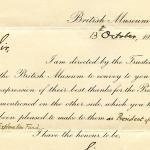 British Museum
13th October, 19
Sir,
I am directed by the Trustees
the British Museum to convey to you
expression of their best thanks for the Pr
mentioned on the other side, which you h
been pleased to make to them as President of
Exploration Fund.
I have the honour to be,
Si